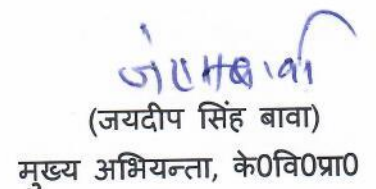 (जयदीप सिंह बावा)
मुख्य अभियन्ता, के0वि0प्रा0